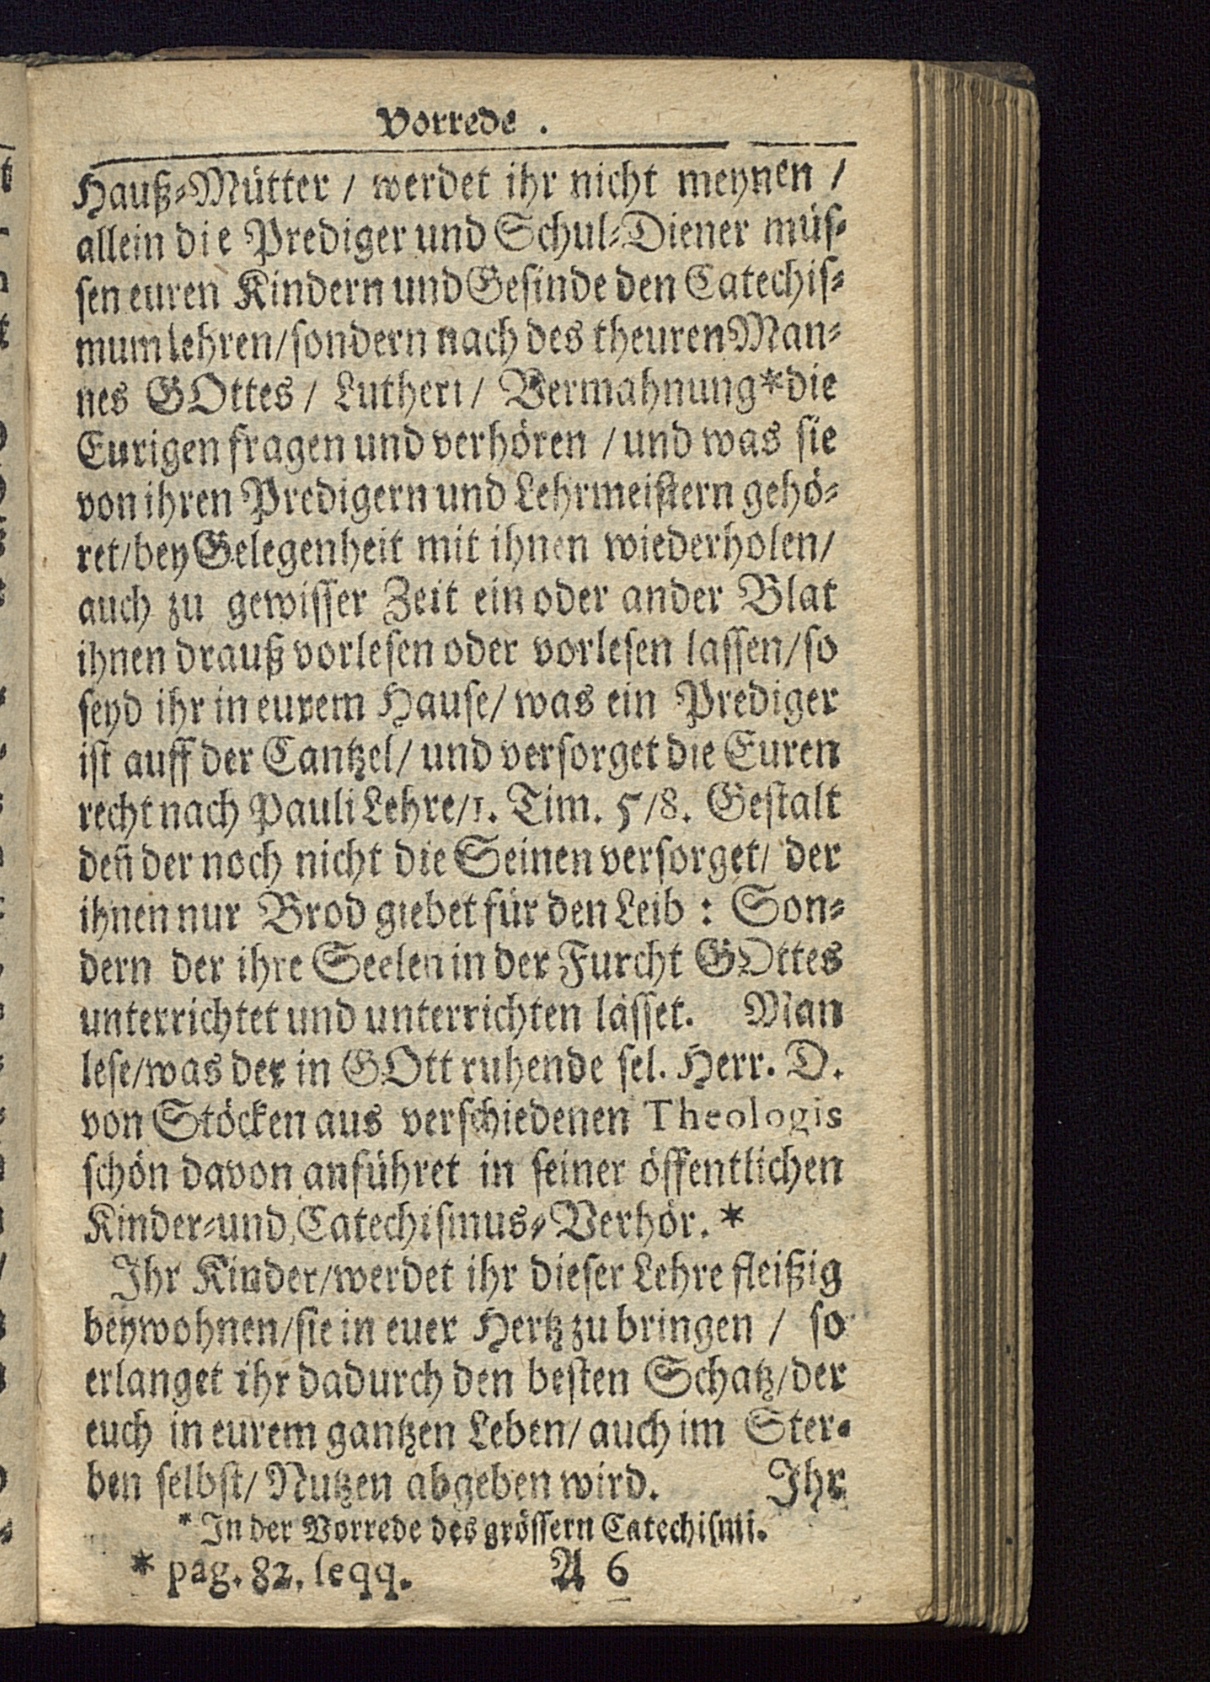 Vorrede.
Hauß-Mütter / werdet ihr nicht meynen /
allein die Prediger und Schul-Diener müs-
sen euren Kindern und Gesinde den Catechis-
mum lehren/sondern nach des theuren Man-
nes GOttes / Lutheri / Vermahnung*die
Eurigen fragen und verhören / und was sie
von ihren Predigern und Lehrmeistern gehö-
ret/bey Gelegenheit mit ihnen wiederholen/
auch zu gewisser Zeit ein oder ander Blat
ihnen drauß vorlesen oder vorlesen lassen/so
seyd ihr in eurem Hause/ was ein Prediger
ist auff der Cantzel/ und versorget die Euren
recht nach Pauli Lehre/1. Tim. 5/8. Gestalt
deñ der noch nicht die Seinen versorget/ der
ihnen nur Brod giebet für den Leib : Son-
dern der ihre Seelen in der Furcht GOttes
unterrichtet und unterrichten lässet. Man
lese/was der in GOtt ruhende sel. Herr. D.
von Stöcken aus verschiedenen Theologis
schön davon anführet in seiner öffentlichen
Kinder-und Catechismus-Verhör. *
Ihr Kinder/werdet ihr dieser Lehre fleißig
beywohnen/sie in euer Hertz zu bringen / so
erlanget ihr dadurch den besten Schatz/der
euch in eurem gantzen Leben/ auch im Ster-
ben selbst/ Nutzen abgeben wird. Ihr
* In der Vorrede des grössern Catechismi.
* pag. 82. seqq. A 6